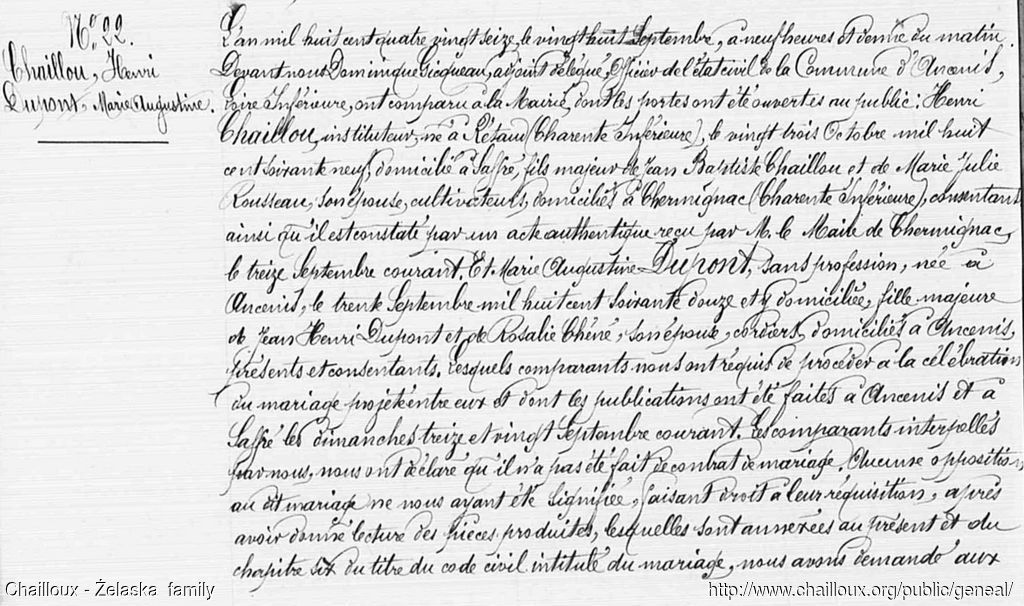 N° 22.
Chaillou, Henri
Dupont, Marie Augustine.
L'an mil huit cent quatre vingt seize, le vingt huit Septembre, à neuf heures et demie du matin.
Devant nous Dominique Gicqueau, adjoint délégué, Officier de l'état civil de la Commune d'Ancenis,
Loire Inférieure, ont comparu à la Mairie, dont les portes ont été ouvertes au public: Henri
Chaillou, instituteur, né à Rétaud (Charente Inférieure), le vingt trois Octobre mil huit
cent soixante neuf, domicilié à Saffré, fils majeur de Jean Baptiste Chaillou et de Marie Julie
Rousseau, son épouse, cultivateurs, domiciliés à Thermignac (Charente Inférieure), consentants
ainsi qu'il est constaté par un acte authentique reçu par M. le Maire de Thermignac,
le treize Septembre courant. Et Marie Augustine Dupont, sans profession, née à
Ancenis, le trente Septembre mil huit cent soixante douze et y domiciliée, fille majeure
de Jean Henri Dupont et de Rosalie Chéné, son épouse, cordiers, domiciliés à Ancenis,
présents et consentants. Lesquels comparants nous ont requis de procéder à la célébration
du mariage projeté entre eux et dont les publications ont été faites à Ancenis et à
Saffré les dimanches treize et vingt Septembre courant. Les comparants interpellés
par nous, nous ont déclaré qu'il n'a pas été fait de contrat de mariage. Aucune opposition
au dit mariage ne nous ayant été signifiée, faisant droit à leur réquisition, après
avoir donné lecture des pièces produites, lesquelles sont annexées au présent et du
chapitre six du titre du code civil intitulé du mariage, nous avons demandé aux
Chailloux - Żelaska family
http://www.chailloux.org/public/geneal/